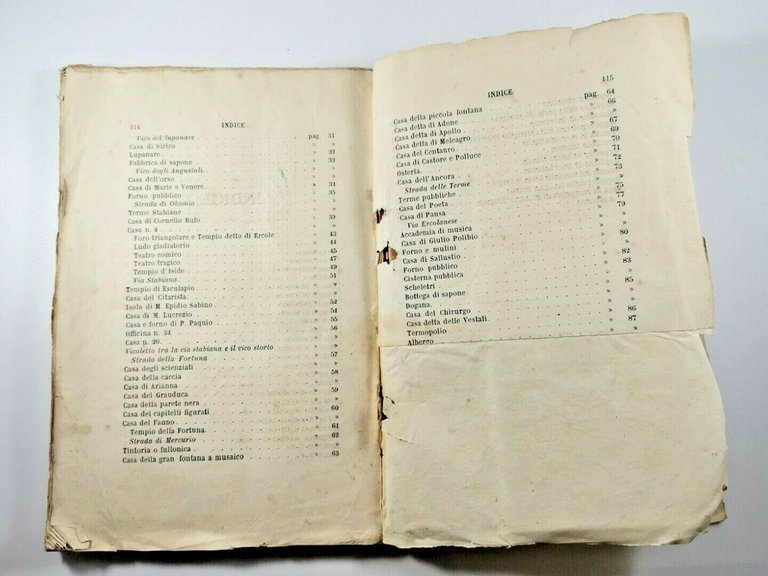 114 INDICE
Vico del lupanare . pag. 31
Casa di Sirico » »
Lupanare » 32
Fabbrica di sapone » 33
Vico degli Augustali » »
Casa dell'orso » »
Casa di Marte e Venere » 34
Forno pubblico » 35
Strada di Olconio » »
Terme Stabiane » »
Casa di Cornelio Rufo » 39
Casa n. 4 » »
Foro triangolare e Tempio detto di Ercole » 43
Ludo gladiatorio » 44
Teatro comico » 45
Teatro tragico » 47
Tempio d'Iside » 49
Via Stabiana » 51
Tempio di Esculapio » »
Casa del Citarista » »
Isola di M. Epidio Sabino » 52
Casa di M. Lucrezio » 54
Casa e forno di P. Paquio » 55
Officina n. 24 » 56
Casa n. 20 » »
Vicoletto tra la via stabiana e il vico storto » »
Strada della Fortuna » 57
Casa degli scienziati » »
Casa della caccia » 58
Casa di Arianna » »
Casa del Granduca » 59
Casa della parete nera » »
Casa dei capitelli figurati » 60
Casa del Fauno » »
Tempio della Fortuna » 61
Strada di Mercurio » 62
Tintoria o fullonica » »
Casa della gran fontana a musaico » 63
INDICE 115
Casa della piccola fontana pag. 64
Casa detta di Adone » 66
Casa detta di Apollo » »
Casa detta di Meleagro » 67
Casa del Centauro » 69
Casa di Castore e Polluce » 70
Osteria » 71
Casa dell'Ancora » 72
Strada delle Terme » 73
Terme pubbliche » »
Casa del Poeta » 75
Casa di Pansa » 77
Via Ercolanese » 79
Accademia di musica » »
Casa di Giulio Polibio » »
Forno e mulini » 80
Casa di Sallustio » »
Forno pubblico » 82
Cisterna pubblica » 83
Scheletri » »
Bottega di sapone » 85
Dogana » »
Casa del Chirurgo » »
Casa detta delle Vestali » 86
Termopolio » 87
Albergo » »